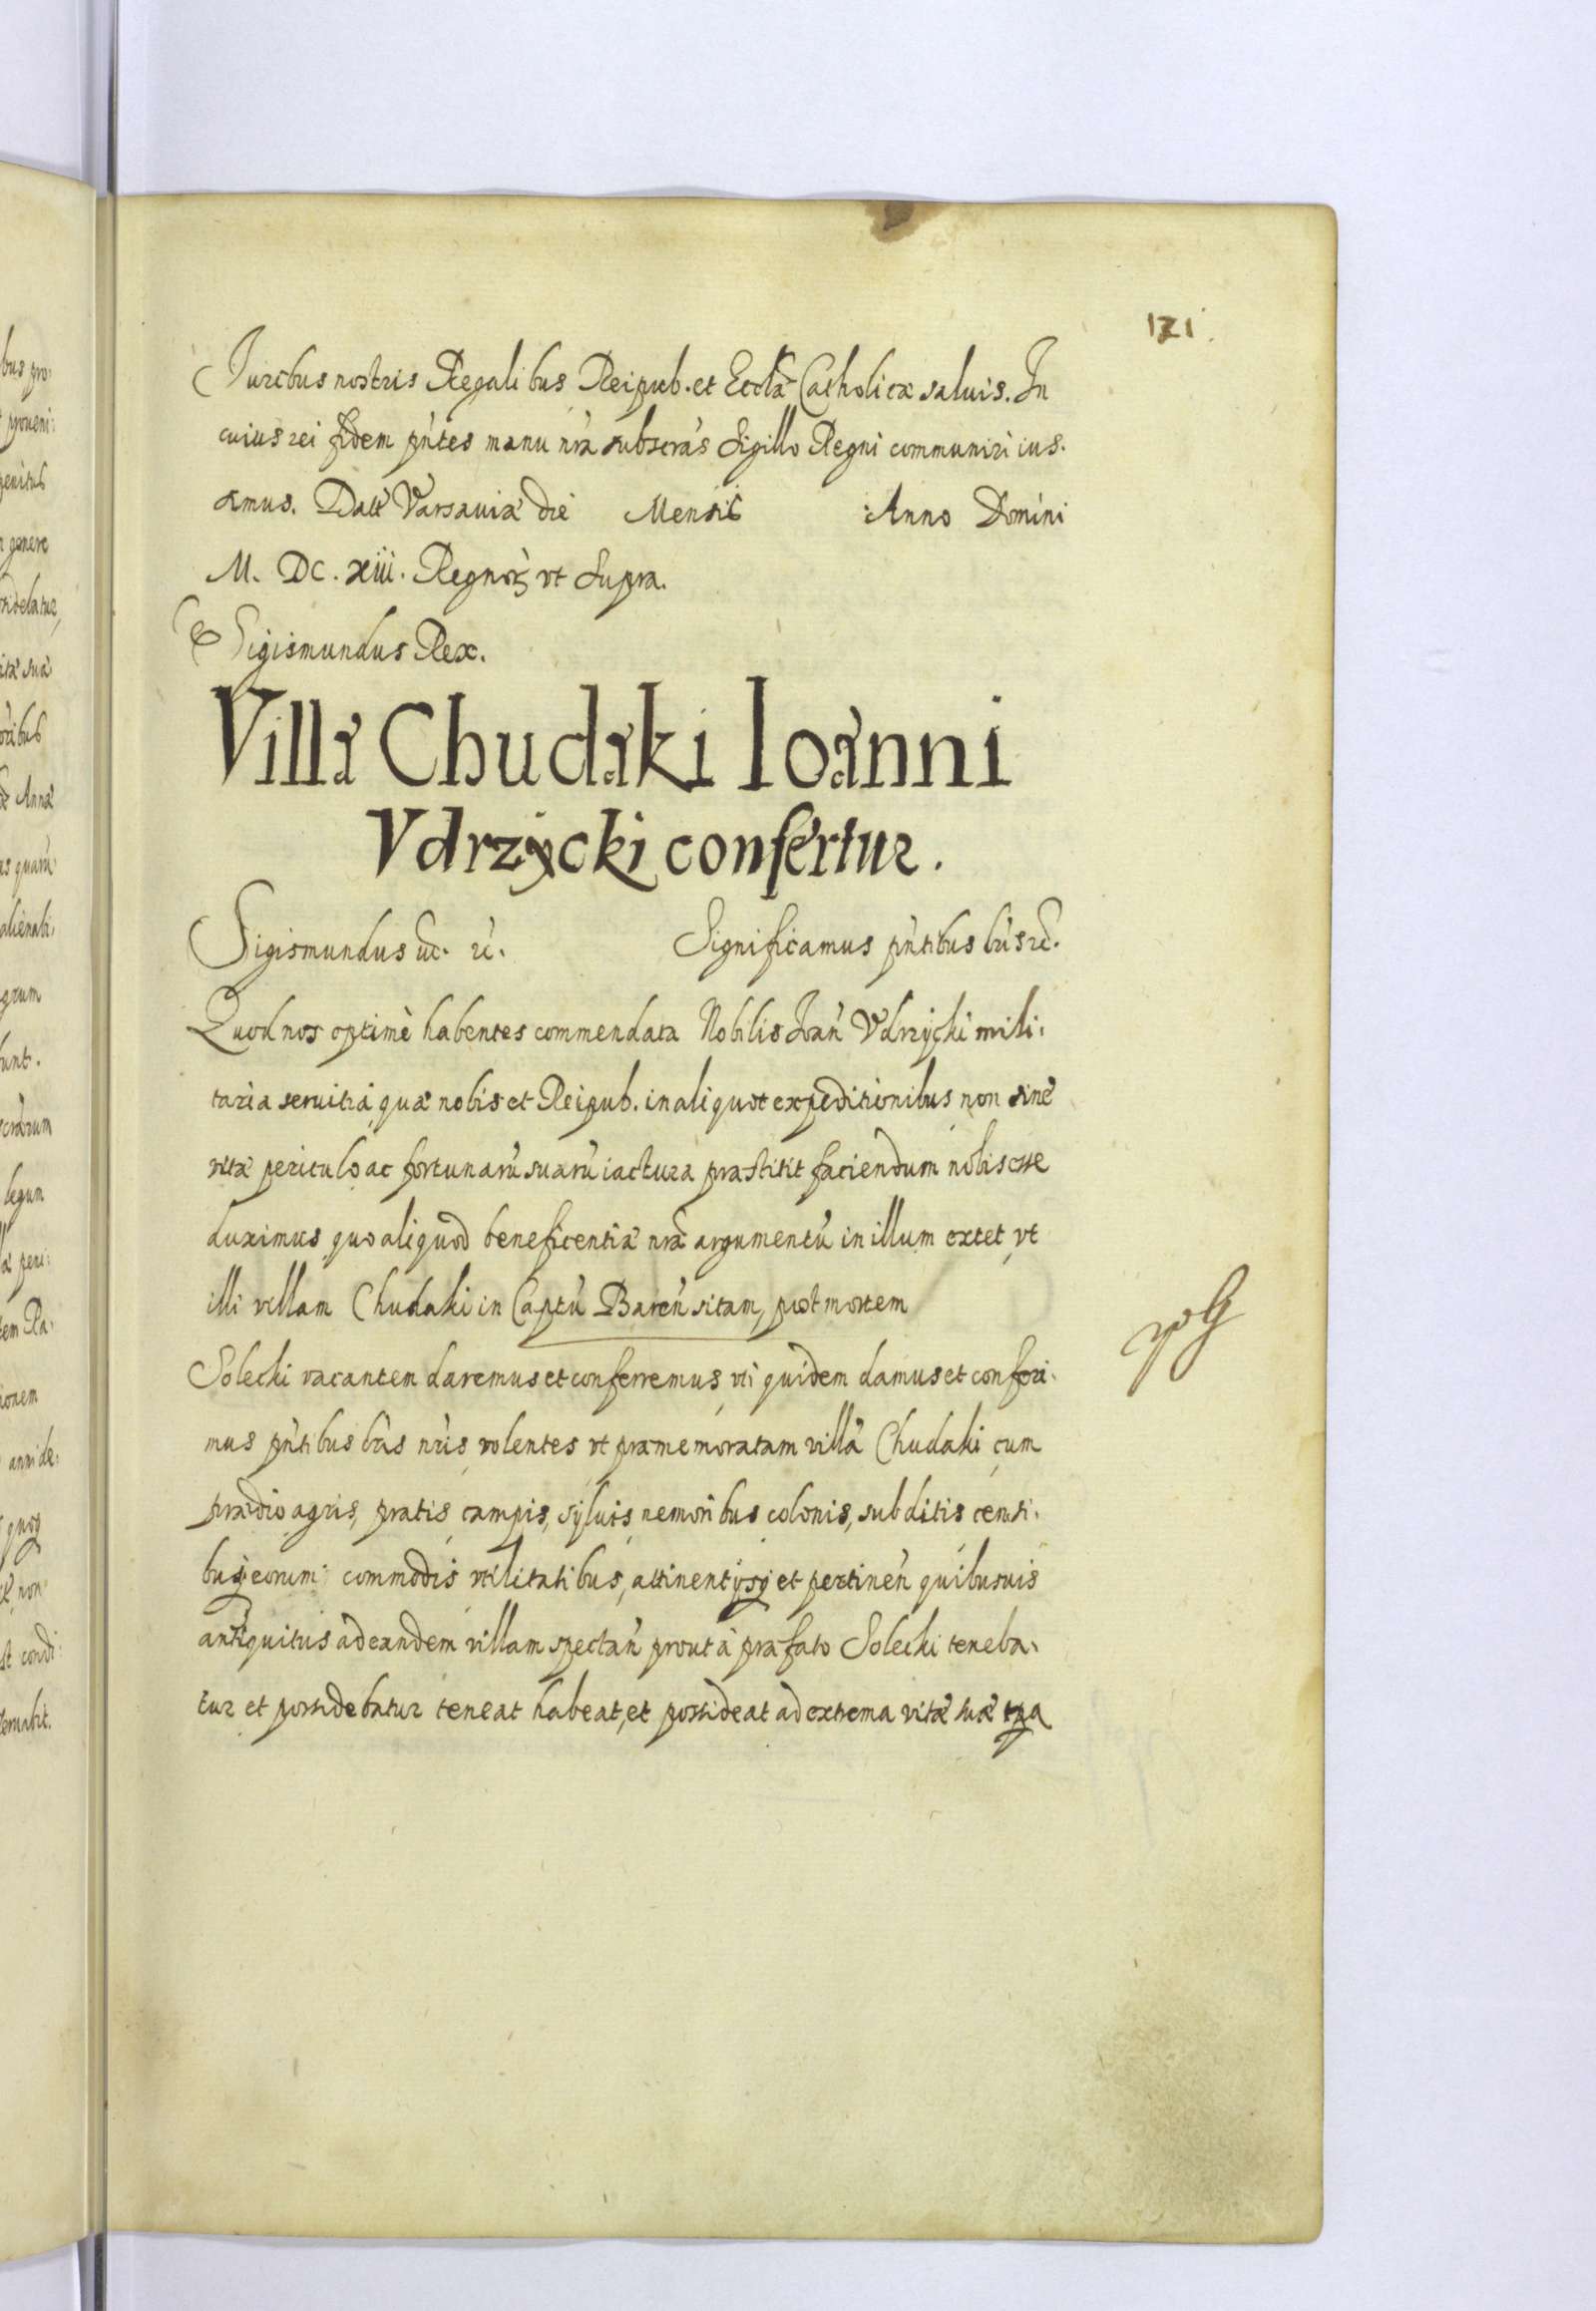 121.
Iuribus nostris Regalibus Reipub. et Ecclã Catholicæ saluis. In
cuius rei fidem pñtes manu nrã subscrãs Sigillo Regni communiri ius-
simus. Datt Varsauiæ die Mensis Anno Domini
M. DC. XIII. Regnor ut supra.
Sigismundus Rex.
Villa Chudaki Ioanni
Vdrzycki confertur.
Sigismundus etc. etc. Significamus pñtibus lris etc.
Quod nos optimè habentes commendata Nobilis Ioañ Vdrzycki mili-
taria seruitia, quæ nobis et Reipub. in aliquot expeditionibus non sine
vitæ periculo ac fortunarũ suarũ iactura præstitit faciendum nobis esse
duximus quo aliquod beneficentiæ nrã argumentũ in illum extet, vt
illi villam Chudaki in Captũ Bareñ sitam, post mortem
Solecki vacantem daremus et conferremus, vti quidem damus et conferi-
mus pñtibus lris nris volentes vt præmemoratam villã Chudaki cum
prædio agris, pratis, campis, syluis, nemoribus colonis, subditis censi-
busq eorum commodis vtilitatibus, attinentijsq et pertineñ quibusuis
antiquitus ad eandem villam spectañ prout à præfato Solecki teneba-
tur et possidebatur teneat habeat, et possideat ad extrema vitæ suæ tpa